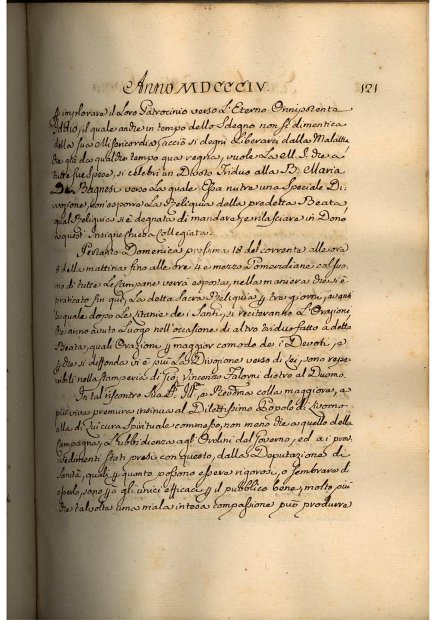 Anno MDCCCIV. 121
implorare il Loro Patrocinio verso L'Eterno Onnipotente
Iddio, il quale anche in tempo dello Sdegno non si dimentica
della sua Misericordia, acciò si degni Liberarci dalla Malattia
che già da qualche tempo qua regna, vuole La M. S. che a
tutte sue spese, si celebri un Divoto Triduo alla B. Maria
Bagnesi verso La quale Essa nutre una speciale Di-
vozione, con esporre La Reliquia della predetta Beata,
qual Reliquia si è degnata di mandare, e rilasciare in Dono
a quest' Insigne Chiesa Collegiata.
Pertanto Domenica prossima 18 del corrente alle ore
8 della mattina fino alle ore 4 e mezzo Pomeridiane col suo-
no di tutte Le Campane verrà esposta, nella maniera che si è
praticato fin qui, La detta Sacra Reliquia p tre giorni,
quale dopo Le Litanie dei Santi, si reciteranno L'Orazioni
che anno avuto Luogo nell'occasione di altro Triduo fatto a detta
Beata, quali Orazioni p maggior comodo dei Devoti, e p-
che si diffonda vi è più La Divozione verso di Lei, sono repe-
ribili nella Stamperia di Gio. Vincenzo Falorni dietro al Duomo.
In tal riscontro Ill. e Revdma colla maggiore, e
più viva premura insinua al Dilettissimo Popolo di Livorno
alla di Lui cura Spirituale commesso, non meno che a quello della
Campagna, L'ubbidienza agl'Ordini del Governo, ed ai prov-
vedimenti stati presi con questo, dalla Deputazione di
Sanità, quali p quanto possono essere rigorosi, o sembrare di
sono p gli unici efficaci p il pubblico bene, molto più
che talvolta una mala intesa compassione può produrre